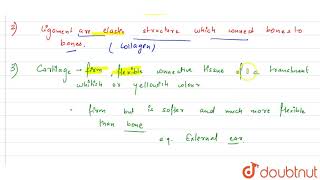 2) Ligament are elastic structure which connect bones to
bones. (Collagen)
3) Cartilage → firm, flexible connective tissue of a translucent
whitish or yellowish colour
· firm but is softer and much more flexible
than bone
e.g. External ear
doubtnut